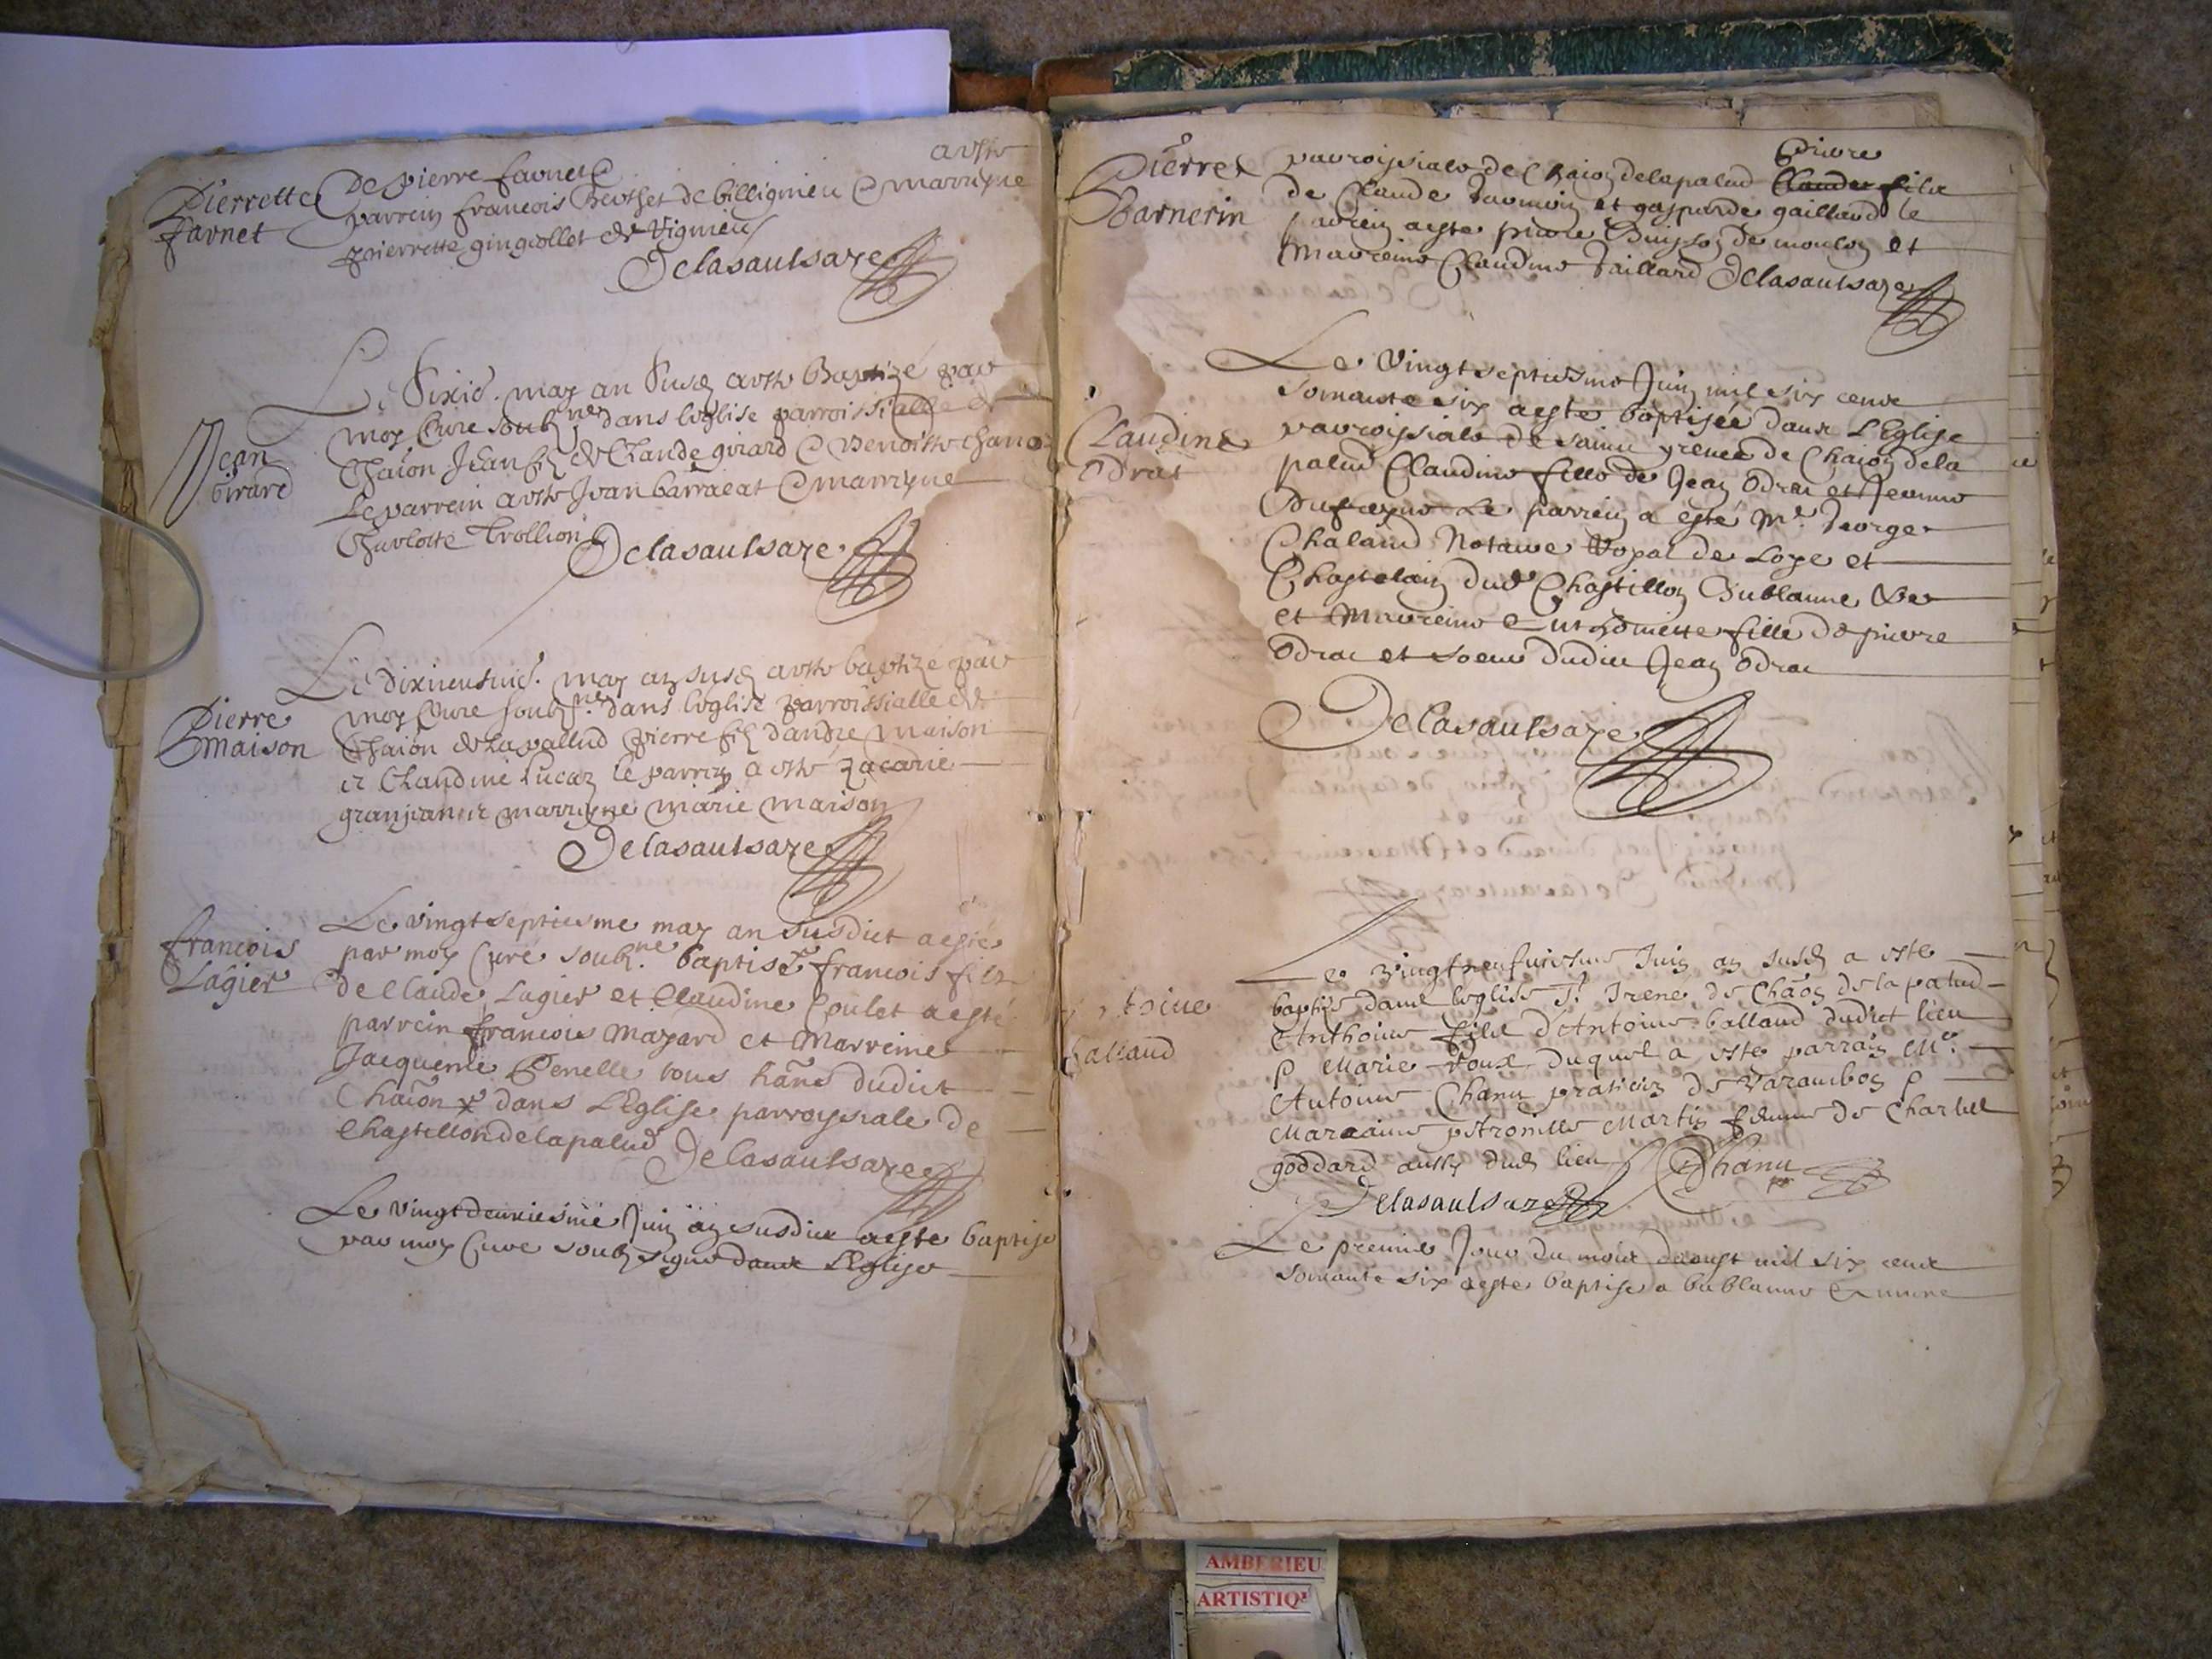 Pierrette
favnet
De pierre favnet @ a esté
parrein francois Berthet de billignieu @ marreyne
pierrette gingeollet de Vignieu
Delasaulsaye
Jean
Girard
Le Sixie. may an susd a esté Baptizé par
moy Cure soubzne dans leglise parroissialle de
Chaîon Jean filz de Claude girard @ Benoiste
Le parrein a esté Jean barracat @ marreyne
Charlotte Trollion
Delasaulsaye
Pierre
Maison
Le dixneufvie. may an susd a esté baptizé par
moy Cure soubzne dans leglise parroissialle de
Chaîon de Lapallud pierre filz dandre maison
et Claudine lucaz le parrein a esté Zacarie
granjan et marreyne marie maison
Delasaulsaye
francois
Lagier
Le vingtseptiesme may an susdict a esté
par moy Curé soubzne. baptisé francois filz
de Claude Lagier et Claudine Coulet a esté
parrein francois Mazard et Marreine
Jacqueme Penelle tous hans dudict
Chaîon dans L'Eglise parroyssiale de
Chastillon delapalud Delasaulsaye
Le vingtdeuxiesme Juin an susdict a esté baptisé
par moy Cure soubzsigné dans L'Eglise
Pierre
Barnerin
Pierre
parroyssiale de Chaîon delapalud Claude filz
de Claude et gasparde gaillard le
parrein a esté pierre Buisson de moulon et
Marreine Claudine Jaillard Delasaulsaye
Claudine
Odrat
Le Vingtseptiesme Juin mil six cent
soixante six a esté baptisée dans L'Eglise
parroyssiale de sainct yrenée de Chaîon dela
palud Claudine fille de Jean Odrat et Jeanne
Dufresne Le parrein a esté Mre. George
Chaland Notaire Royal de Loye et
Chastelain dud Chastillon Bublanne
et Marreine Enthoinette fille de pierre
Odrat et soeur dudict Jean Odrat
Delasaulsaye
thoine
balland
Le vingtneufviesme Juin an susd a esté
baptisé dans leglise St. Irené de Chaôn de la palud
Anthoine filz d'Antoine balland dudict lieu
& Marie Roux duquel a esté parrain Me.
Antoine Chanu praticien de Varambon &
Marraine petronille Martin femme de Charles
goddard aussy dud lieu Chanu
Delasaulsaye
Le premier Jour du mois daoust mil six cent
soixante six a esté baptisé a bublanne
AMBERIEU
ARTISTIQ